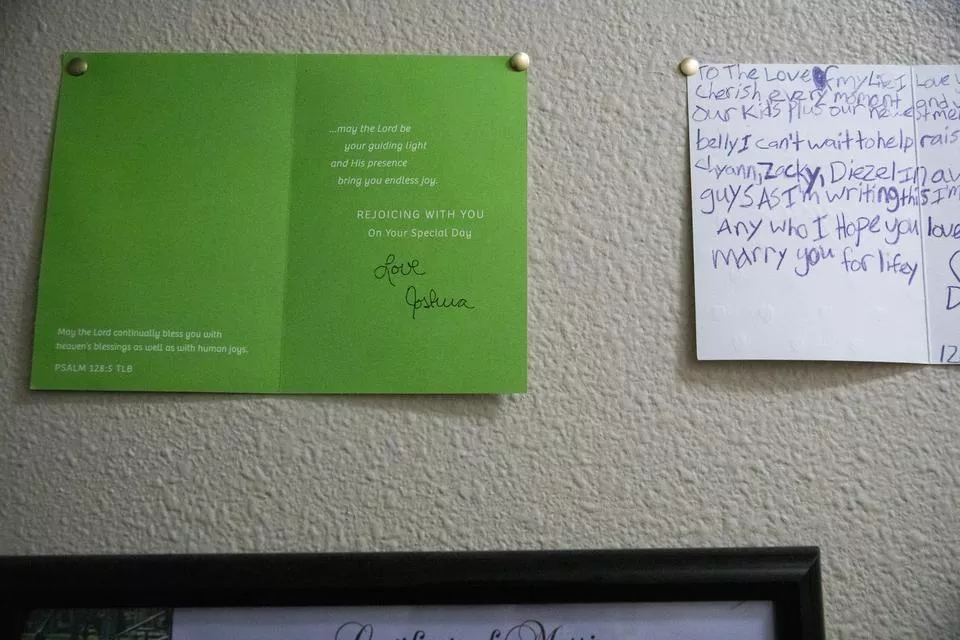 May the Lord continually bless you with
heaven's blessings as well as with human joys.
PSALM 128:5 TLB
...may the Lord be
your guiding light
and His presence
bring you endless joy.
REJOICING WITH YOU
On Your Special Day
Love
Joshua
To The Love of my Life I Love
Cherish every moment and
our Kids plus our newest
belly I can't wait to help
chyann, Zacky, Diezel In
guys As I'm writing this I'm
Any who I Hope you love
marry you for lifey
12
Certificate of